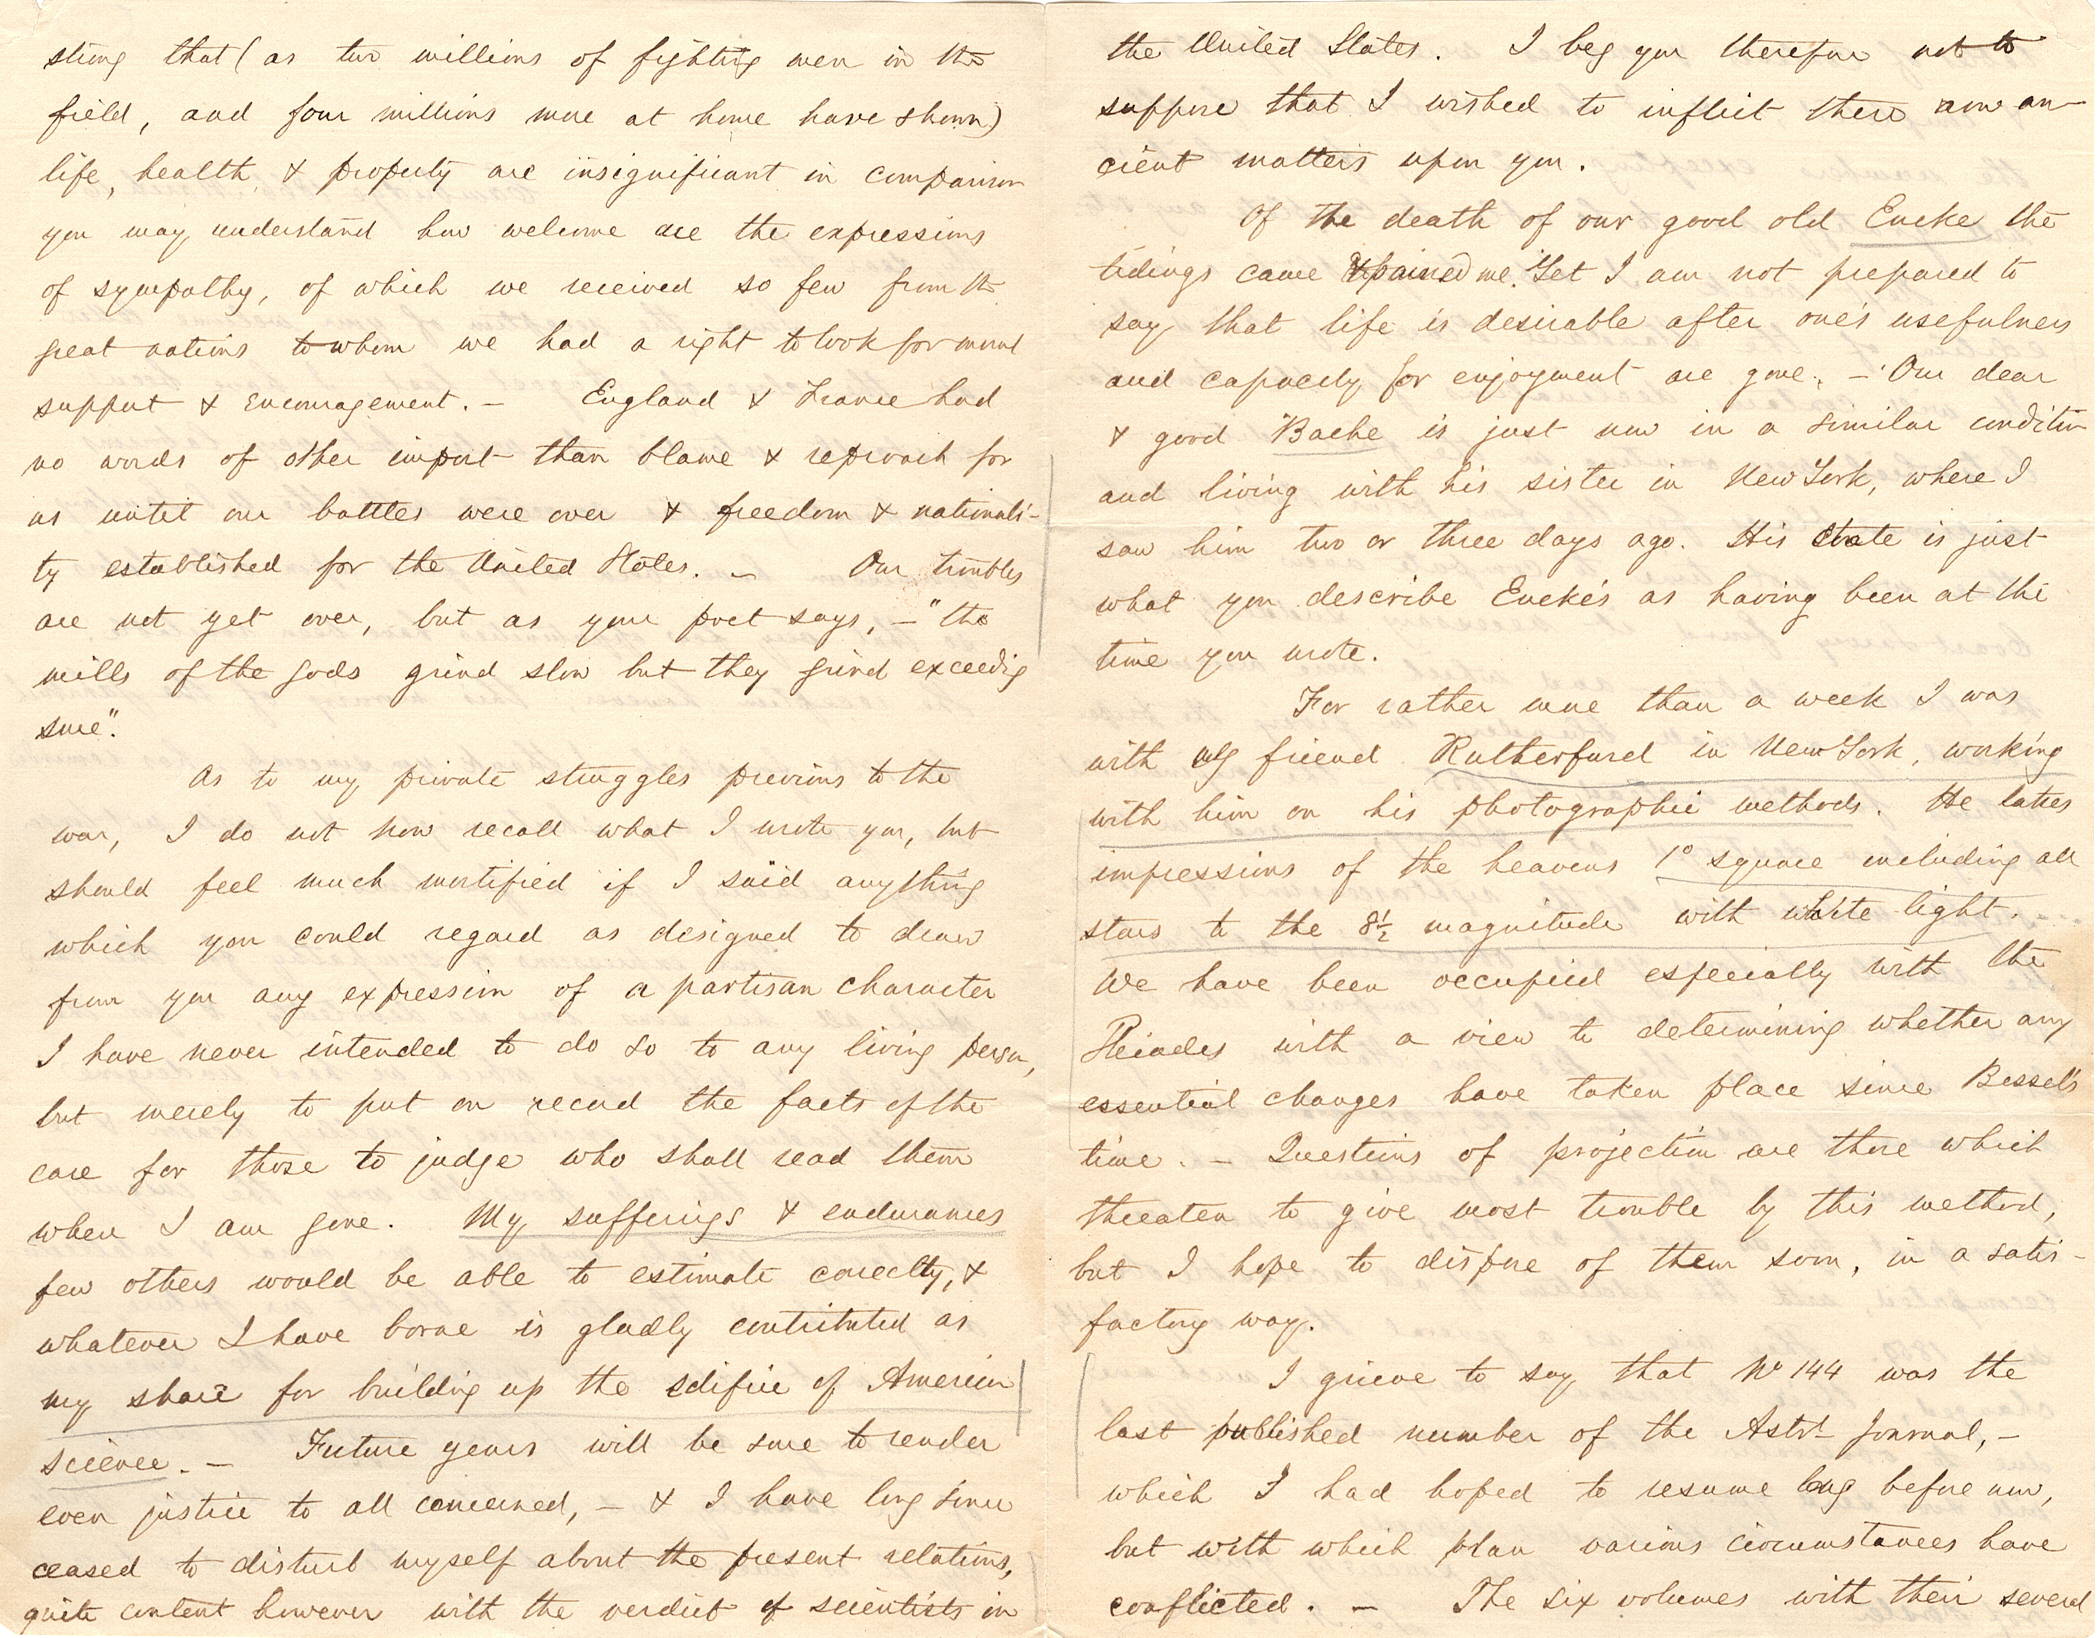 strong that (as two millions of fighting men in the
field, and four millions more at home have shown)
life, health, & property are insignificant in comparison
you may understand how welcome are the expressions
of sympathy, of which we received so few from the
great nations to whom we had a right to look for moral
support & encouragement. – England & France had
no words of other import than blame & reproach for
us until our battles were over & freedom & nationali-
ty established for the United States. – Our troubles
are not yet over, but as your poet says, – "the
mills of the gods grind slow but they grind exceeding
sure".
As to my private struggles previous to the
war, I do not now recall what I wrote you, but
should feel much mortified if I said anything
which you could regard as designed to draw
from you any expression of a partisan character
I have never intended to do so to any living person,
but merely to put on record the facts of the
case for those to judge who shall read them
when I am gone. My sufferings & endurances
few others would be able to estimate correctly, &
whatever I have borne is gladly contributed as
my share for building up the edifice of American
science. – Future years will be sure to render
even justice to all concerned, – & I have long since
ceased to disturb myself about the present relations,
quite content however with the verdict of scientists in
the United States. I beg you therefore not to
suppose that I wished to inflict these now an-
cient matters upon you.
Of the death of our good old Encke the
tidings came & pained me. Yet I am not prepared to
say that life is desirable after one's usefulness
and capacity for enjoyment are gone. – Our dear
& good Bache is just now in a similar condition
and living with his sister in New York, where I
saw him two or three days ago. His state is just
what you describe Encke's as having been at the
time you wrote.
For rather more than a week I was
with my friend Rutherfurd in New York, working
with him on his photographic methods. He takes
impressions of the heavens 1° square including all
stars to the 8½ magnitude with white light.
We have been occupied especially with the
Pleiades with a view to determining whether any
essential changes have taken place since Bessel's
time. – Questions of projection are those which
threaten to give most trouble by this method,
but I hope to dispose of them soon, in a satis-
factory way.
I grieve to say that No 144 was the
last published number of the Astrl Journal, –
which I had hoped to resume long before now,
but with which plan various circumstances have
conflicted. – The six volumes with their several